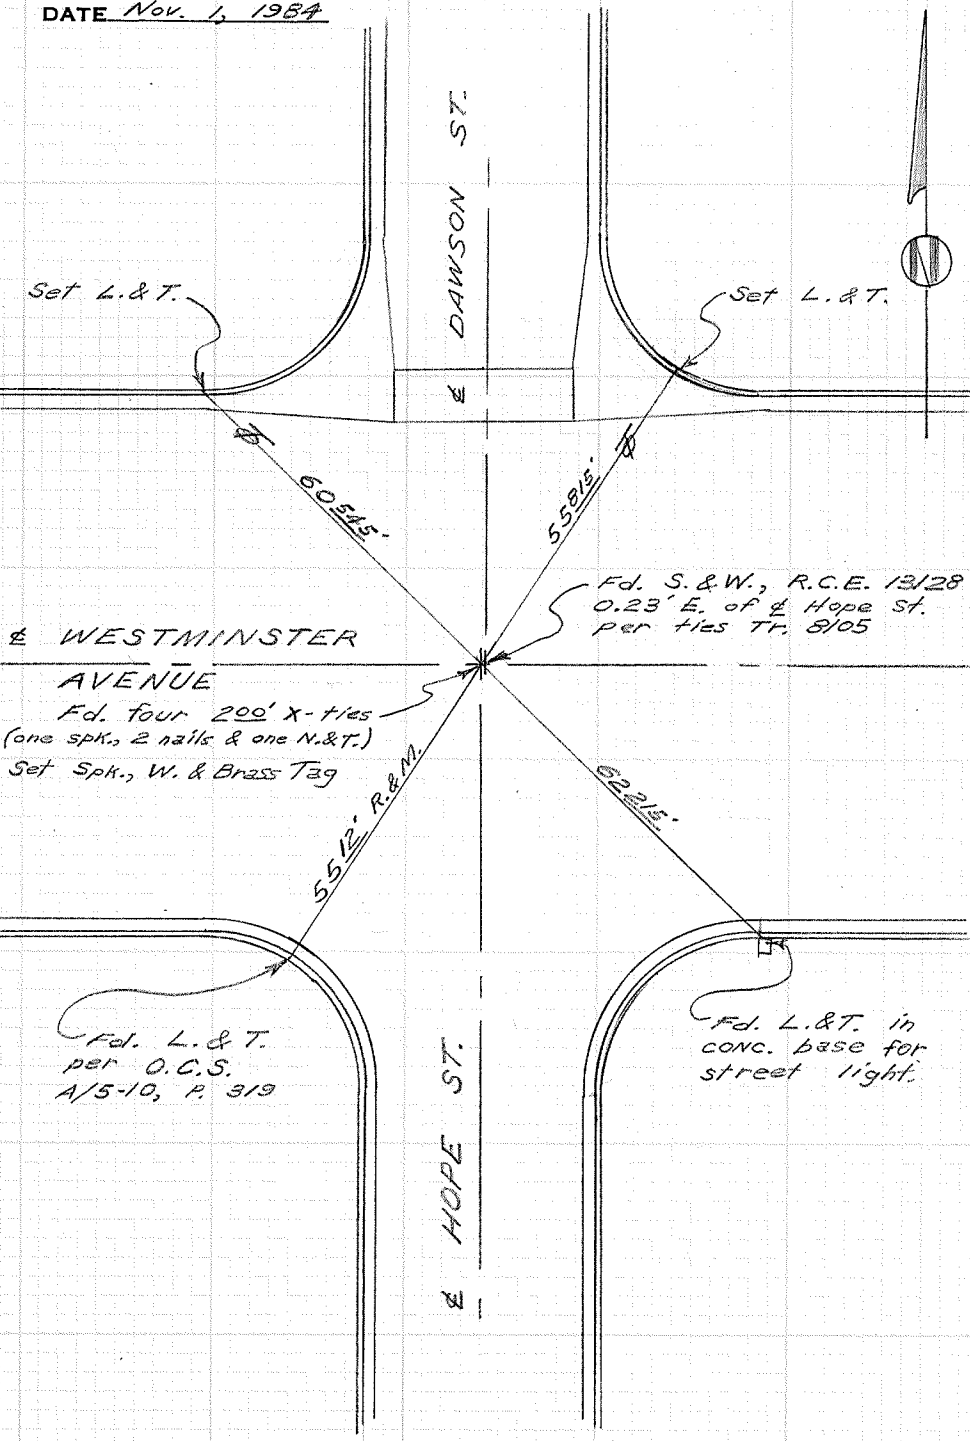 DATE Nov. 1, 1984
DAWSON ST.
Set L.&T.
Set L.&T.
℄
60545'
55815'
Fd. S.&W., R.C.E. 13128
0.23' E. of ℄ Hope St.
per ties Tr. 8105
℄ WESTMINSTER
AVENUE
Fd. four 200' X-ties
(one spk., 2 nails & one N.&T.)
Set Spk., W. & Brass Tag
5512' R.&M.
62215'
Fd. L.&T.
per O.C.S.
A/5-10, P. 319
Fd. L.&T. in
conc. base for
street light.
℄ HOPE ST.